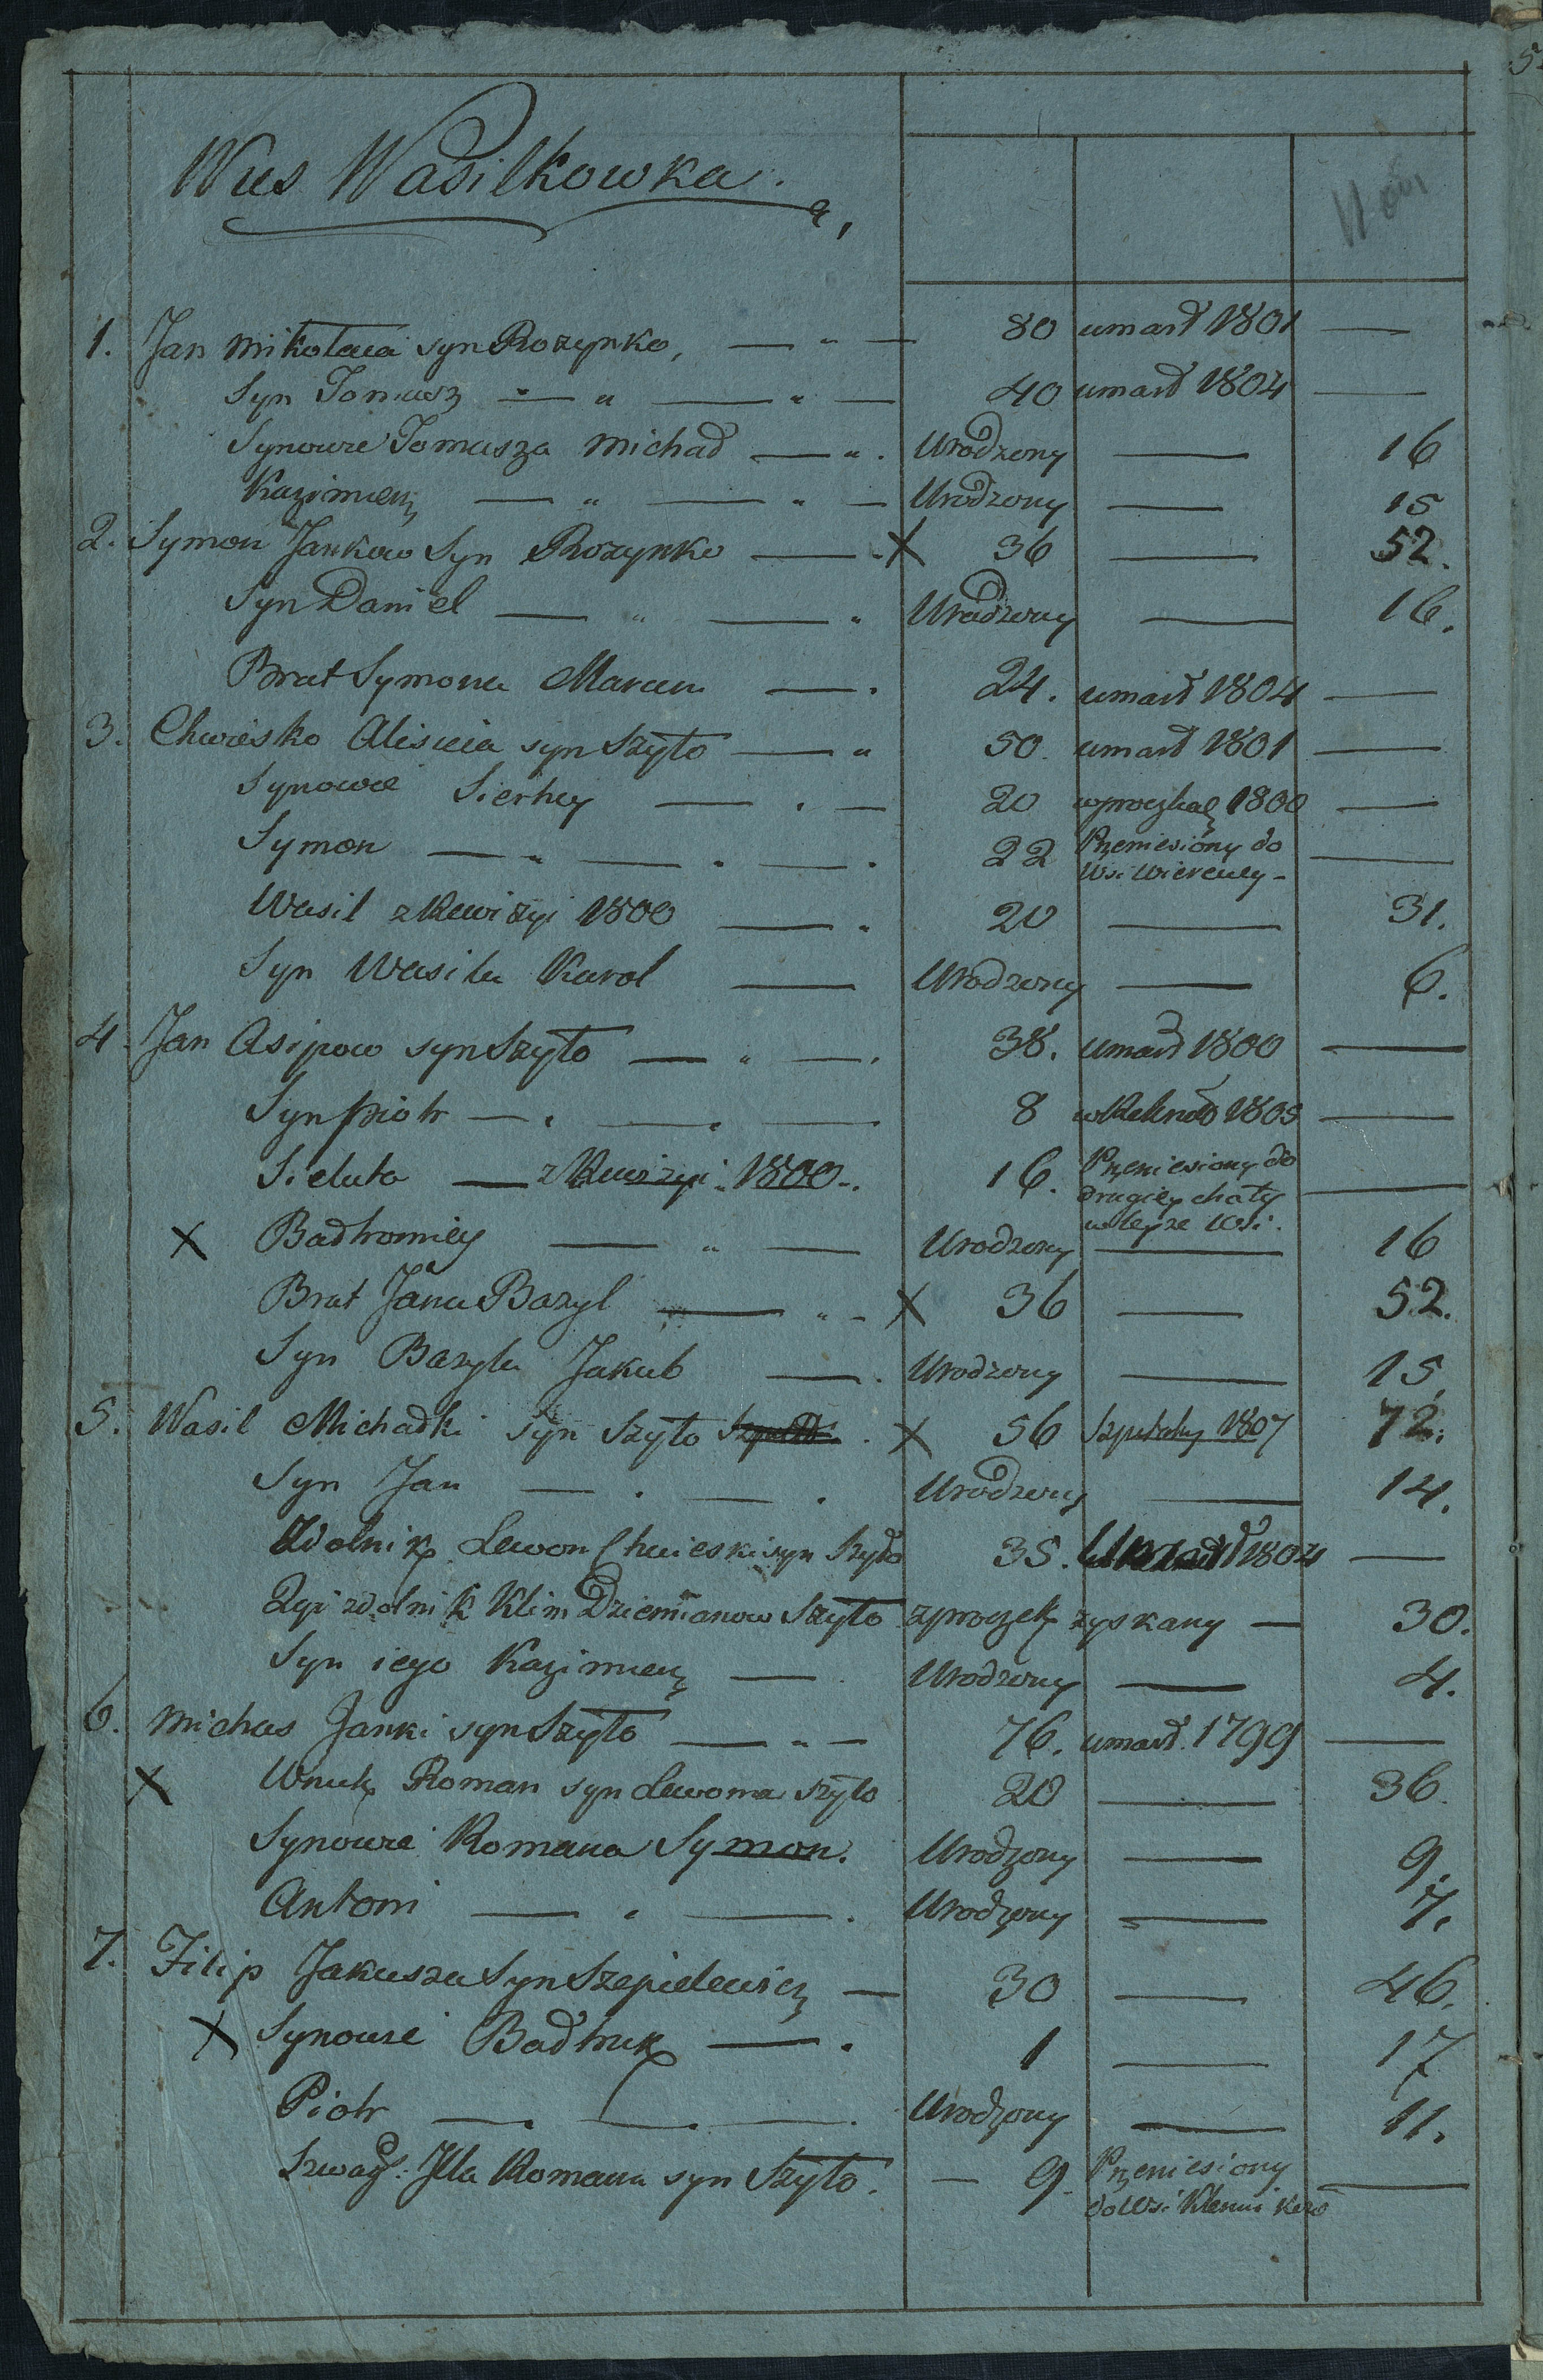 Wies Wasilkowka.
1. Jan Mikołaia syn Rozynko, — " — 80 umarł 1801 —
Syn Tomasz — " — " — 40 umarł 1804 —
Synowie Tomasza Michał — " . Urodzony — 16
Kazimierz — " — " — Urodzony — 15
2. Symon Jankow Syn Rozynko — " X 36 — 52.
Syn Daniel — " — " Urodzony — 16.
Brat Symona Marcin — . 24. umarł 1804 —
3. Chwiesko Alisieia syn Szyło — " 50. umarł 1801 —
Synowie Sierhey — . — 20 1800 —
Symon — " — . — . 22 Przeniesiony do —
Wsi Wierculy -
Wasil z Rewizyi 1800 — " 20 — 31.
Syn Wasila Karol — Urodzony — 6.
4. Jan Asipow syn Szyło — " — . 38. umarł 1800 —
Syn Piotr — . — . — 8 1805 —
Sieluta — z Rewizyi 1800 -. 16. Przeniesiony do —
drugiey chaty
w teyże Wsi.
X Bałtromiey — " — Urodzony — 16
Brat Jana Bazyl — " - X 36 — 52.
Syn Bazyla Jakub — . Urodzony — 15
5. Wasil Michałki syn Szyło . X 56 Szpitalny 1807 72.
Syn Jan — . — . Urodzony — 14.
Zdolnik Lewon Chwieski syn Szyło 35. Umarł 1804 —
2gi zdolnik Klim Dziemianow Szyło zyskany — 30.
Syn iego Kazimierz — Urodzony — 4.
6. Michas Janki syn Szyło — " — 76. umarł. 1799 —
X Wnuk Roman syn Lewona Szyło 20 — 36.
Synowie Romana Symon. Urodzony — 9.
Antoni — " — . Urodzony — 7.
7. Filip Jakusza Syn Szepielewicz — 30 — 46.
X Synowie Bałtruk — . 1 — 17
Piotr — . — . — . Urodzony — 11.
Szwagr: Jlla Romana syn Szyło. — 9. Przeniesiony —
do Wsi